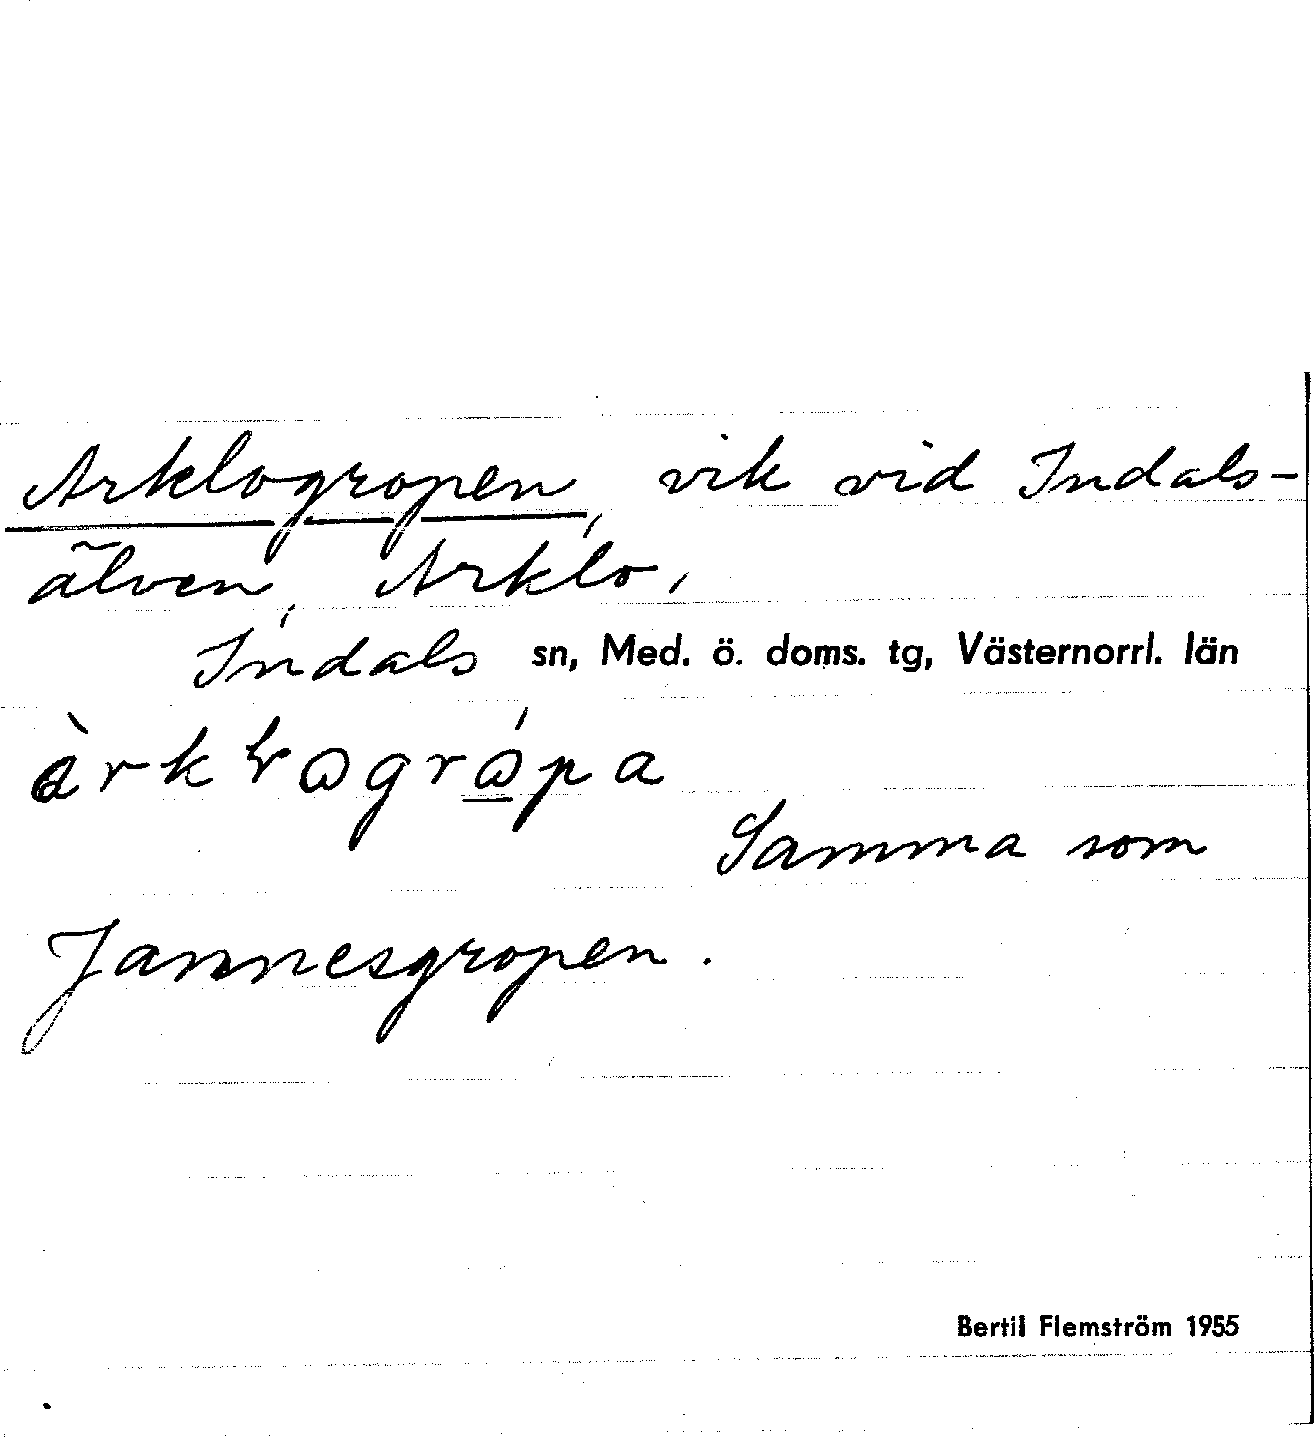 Arklogropen, vik vid Indals-
älven, Arklo,
Indals sn, Med. ö. doms. tg, Västernorrl. län
Samma som
Jannesgropen.
Bertil Flemström 1955